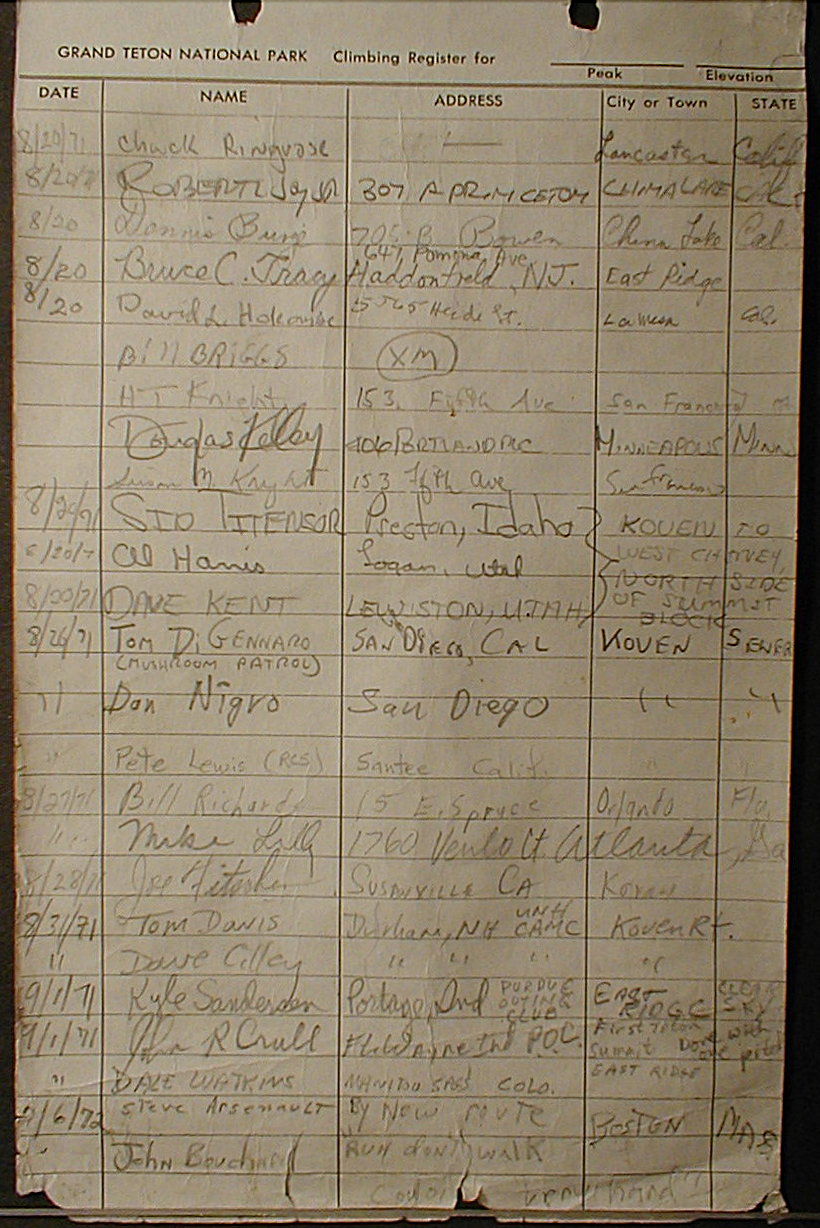 GRAND TETON NATIONAL PARK Climbing Register for
Peak Elevation
DATE NAME ADDRESS City or Town STATE
8/20/71 Chuck Ringrose — Lancaster Calif
8/20/71 ROBERT JR 307 A PRINCETON CHINA LAKE
8/20 Dennis Burge 705 B Bowen China Lake Cal.
641, Pomona Ave
8/20 Bruce C. Tracy Haddonfield, N.J. East Ridge
8/20 David L. Holcombe St. La Mesa Cal.
Bill BRIGGS XM
HT Knight 153, Fifth Ave San Francisco
Douglas Kelley PORTLAND AVE MINNEAPOLIS MINN
Susan M. Knight 153 Fifth Ave San Francisco
8/20/71 SID TITENSOR Preston, Idaho KOVEN TO
8/20/7 Al Harris Logan, Utah WEST CHIMNEY,
NORTH SIDE
8/20/71 DAVE KENT LEWISTON, UTAH OF SUMMIT
BLOCK
8/26/71 TOM DiGENNARO SAN DIEGO, CAL KOVEN SEWER
(MUSHROOM PATROL)
11 Don Nigro San Diego " "
" Pete Lewis (RCS) Santee Calif. " "
8/27/71 Bill Richards 15 E. Spruce Orlando Fla.
" Mike Lilly 1760 Ct Atlanta, Ga
8/28/71 Joe SUSANVILLE CA Koven
8/31/71 TOM DAVIS Durham, NH UNH Koven Rt.
" Dave Cilley " " " "
9/1/71 Kyle Sanderson Portage, Ind PURDUE OUTING CLUB EAST RIDGE CLEAR SKY
9/1/71 John R Crull Ft. Wayne Ind P.O.C. First Teton Summit Done with one
EAST RIDGE
" DALE WATKINS MANITOU SPGS COLO.
Steve Arsenault By New route
/6/72 BOSTON MAS
John Bouchard RUN don't walk